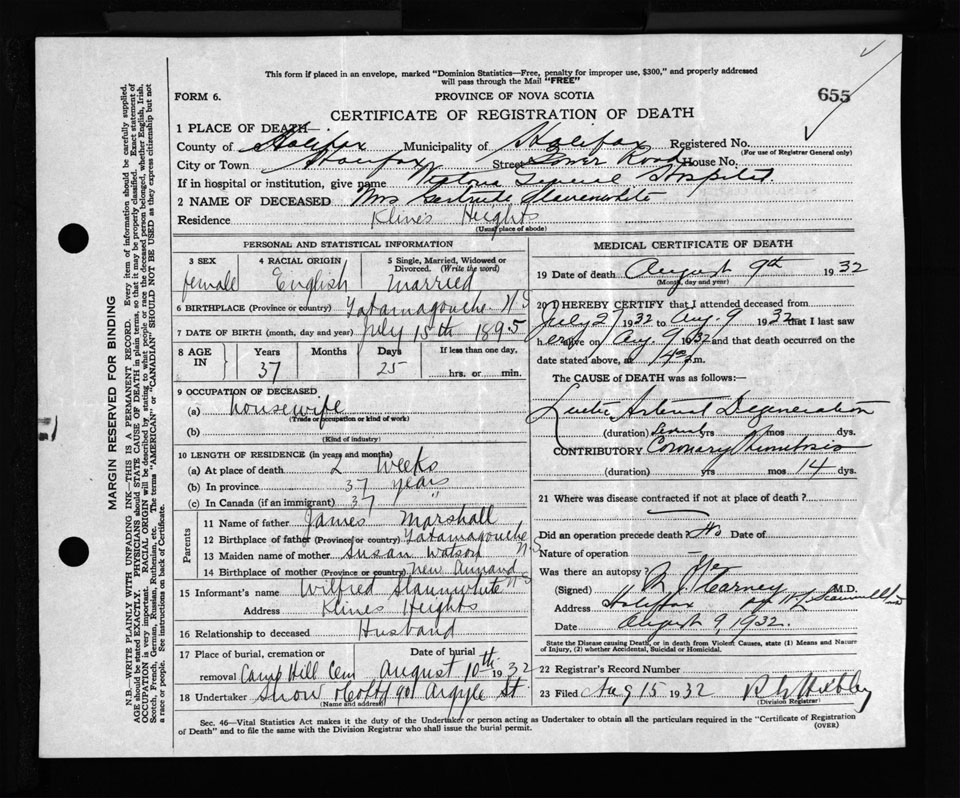 This form if placed in an envelope, marked "Dominion Statistics—Free, penalty for improper use, $300," and properly addressed
will pass through the Mail "FREE"
FORM 6.
PROVINCE OF NOVA SCOTIA
655
CERTIFICATE OF REGISTRATION OF DEATH
1 PLACE OF DEATH—
County of Halifax Municipality of Halifax Registered No.
(For use of Registrar General only)
City or Town Halifax Street Tower Road House No.
If in hospital or institution, give name Victoria General Hospital
2 NAME OF DECEASED Mrs Gertrude Slauenwhite
Residence Klines Heights
(Usual place of abode)
PERSONAL AND STATISTICAL INFORMATION
3 SEX 4 RACIAL ORIGIN 5 Single, Married, Widowed or Divorced. (Write the word)
female English Married
6 BIRTHPLACE (Province or country) Tatamagouche N S
7 DATE OF BIRTH (month, day and year) July 15th 1895
8 AGE IN Years Months Days If less than one day.
37 25 hrs. or min.
9 OCCUPATION OF DECEASED
(a) housewife
(Trade occupation or kind of work)
(b)
(Kind of industry)
10 LENGTH OF RESIDENCE (in years and months)
(a) At place of death 2 weeks
(b) In province 37 years
(c) In Canada (if an immigrant) 37 "
Parents
11 Name of father James Marshall
12 Birthplace of father (Province or country) Tatamagouche N S
13 Maiden name of mother Susan Watson
14 Birthplace of mother (Province or country) New Annand N S
15 Informant Wilfred Slaunwhite
Address Klines Heights
16 Relationship to deceased Husband
17 Place of burial, cremation or removal Date of burial
Camp Hill Cem August 10th 1932
18 Undertaker Snow & Co Ltd 90 Argyle St.
(Name and address)
MEDICAL CERTIFICATE OF DEATH
19 Date of death August 9th 1932
(Month, day and year)
20 I HEREBY CERTIFY that I attended deceased from
July 27 1932 to Aug. 9 1932 that I last saw
her alive on Aug. 9 1932 and that death occurred on the
date stated above, at m.
The CAUSE of DEATH was as follows:—
Luetic Arterial Degeneration
(duration) yrs mos dys.
CONTRIBUTORY Coronary Thrombosis
(duration) yrs mos 14 dys.
21 Where was disease contracted if not at place of death?
Did an operation precede death? No Date of
Nature of operation —
Was there an autopsy?
(Signed) M.D.
Address Halifax
Date August 9, 1932.
State the Disease causing Death, or in death from Violent Causes, state (1) Means and Nature
of Injury, (2) whether Accidental, Suicidal or Homicidal.
22 Registrar's Record Number
23 Filed Aug 15 1932
(Division Registrar)
Sec. 46—Vital Statistics Act makes it the duty of the Undertaker or person acting as Undertaker to obtain all the particulars required in the "Certificate of Registration
of Death" and to file the same with the Division Registrar who shall issue the burial permit.
(OVER)
MARGIN RESERVED FOR BINDING
N.B.—WRITE PLAINLY WITH UNFADING INK—THIS IS A PERMANENT RECORD. Every item of information should be carefully supplied.
AGE should be stated EXACTLY. PHYSICIANS should STATE CAUSE OF DEATH in plain terms, so that it may be properly classified. Exact statement of
OCCUPATION is very important. RACIAL ORIGIN will be described by stating to what people or race the deceased person belonged, whether English, Irish,
Scotch, French, German, Russian, Ruthenian, etc. The terms "AMERICAN" or "CANADIAN" SHOULD NOT BE USED as they express citizenship but not
a race or people. See instructions on back of Certificate.